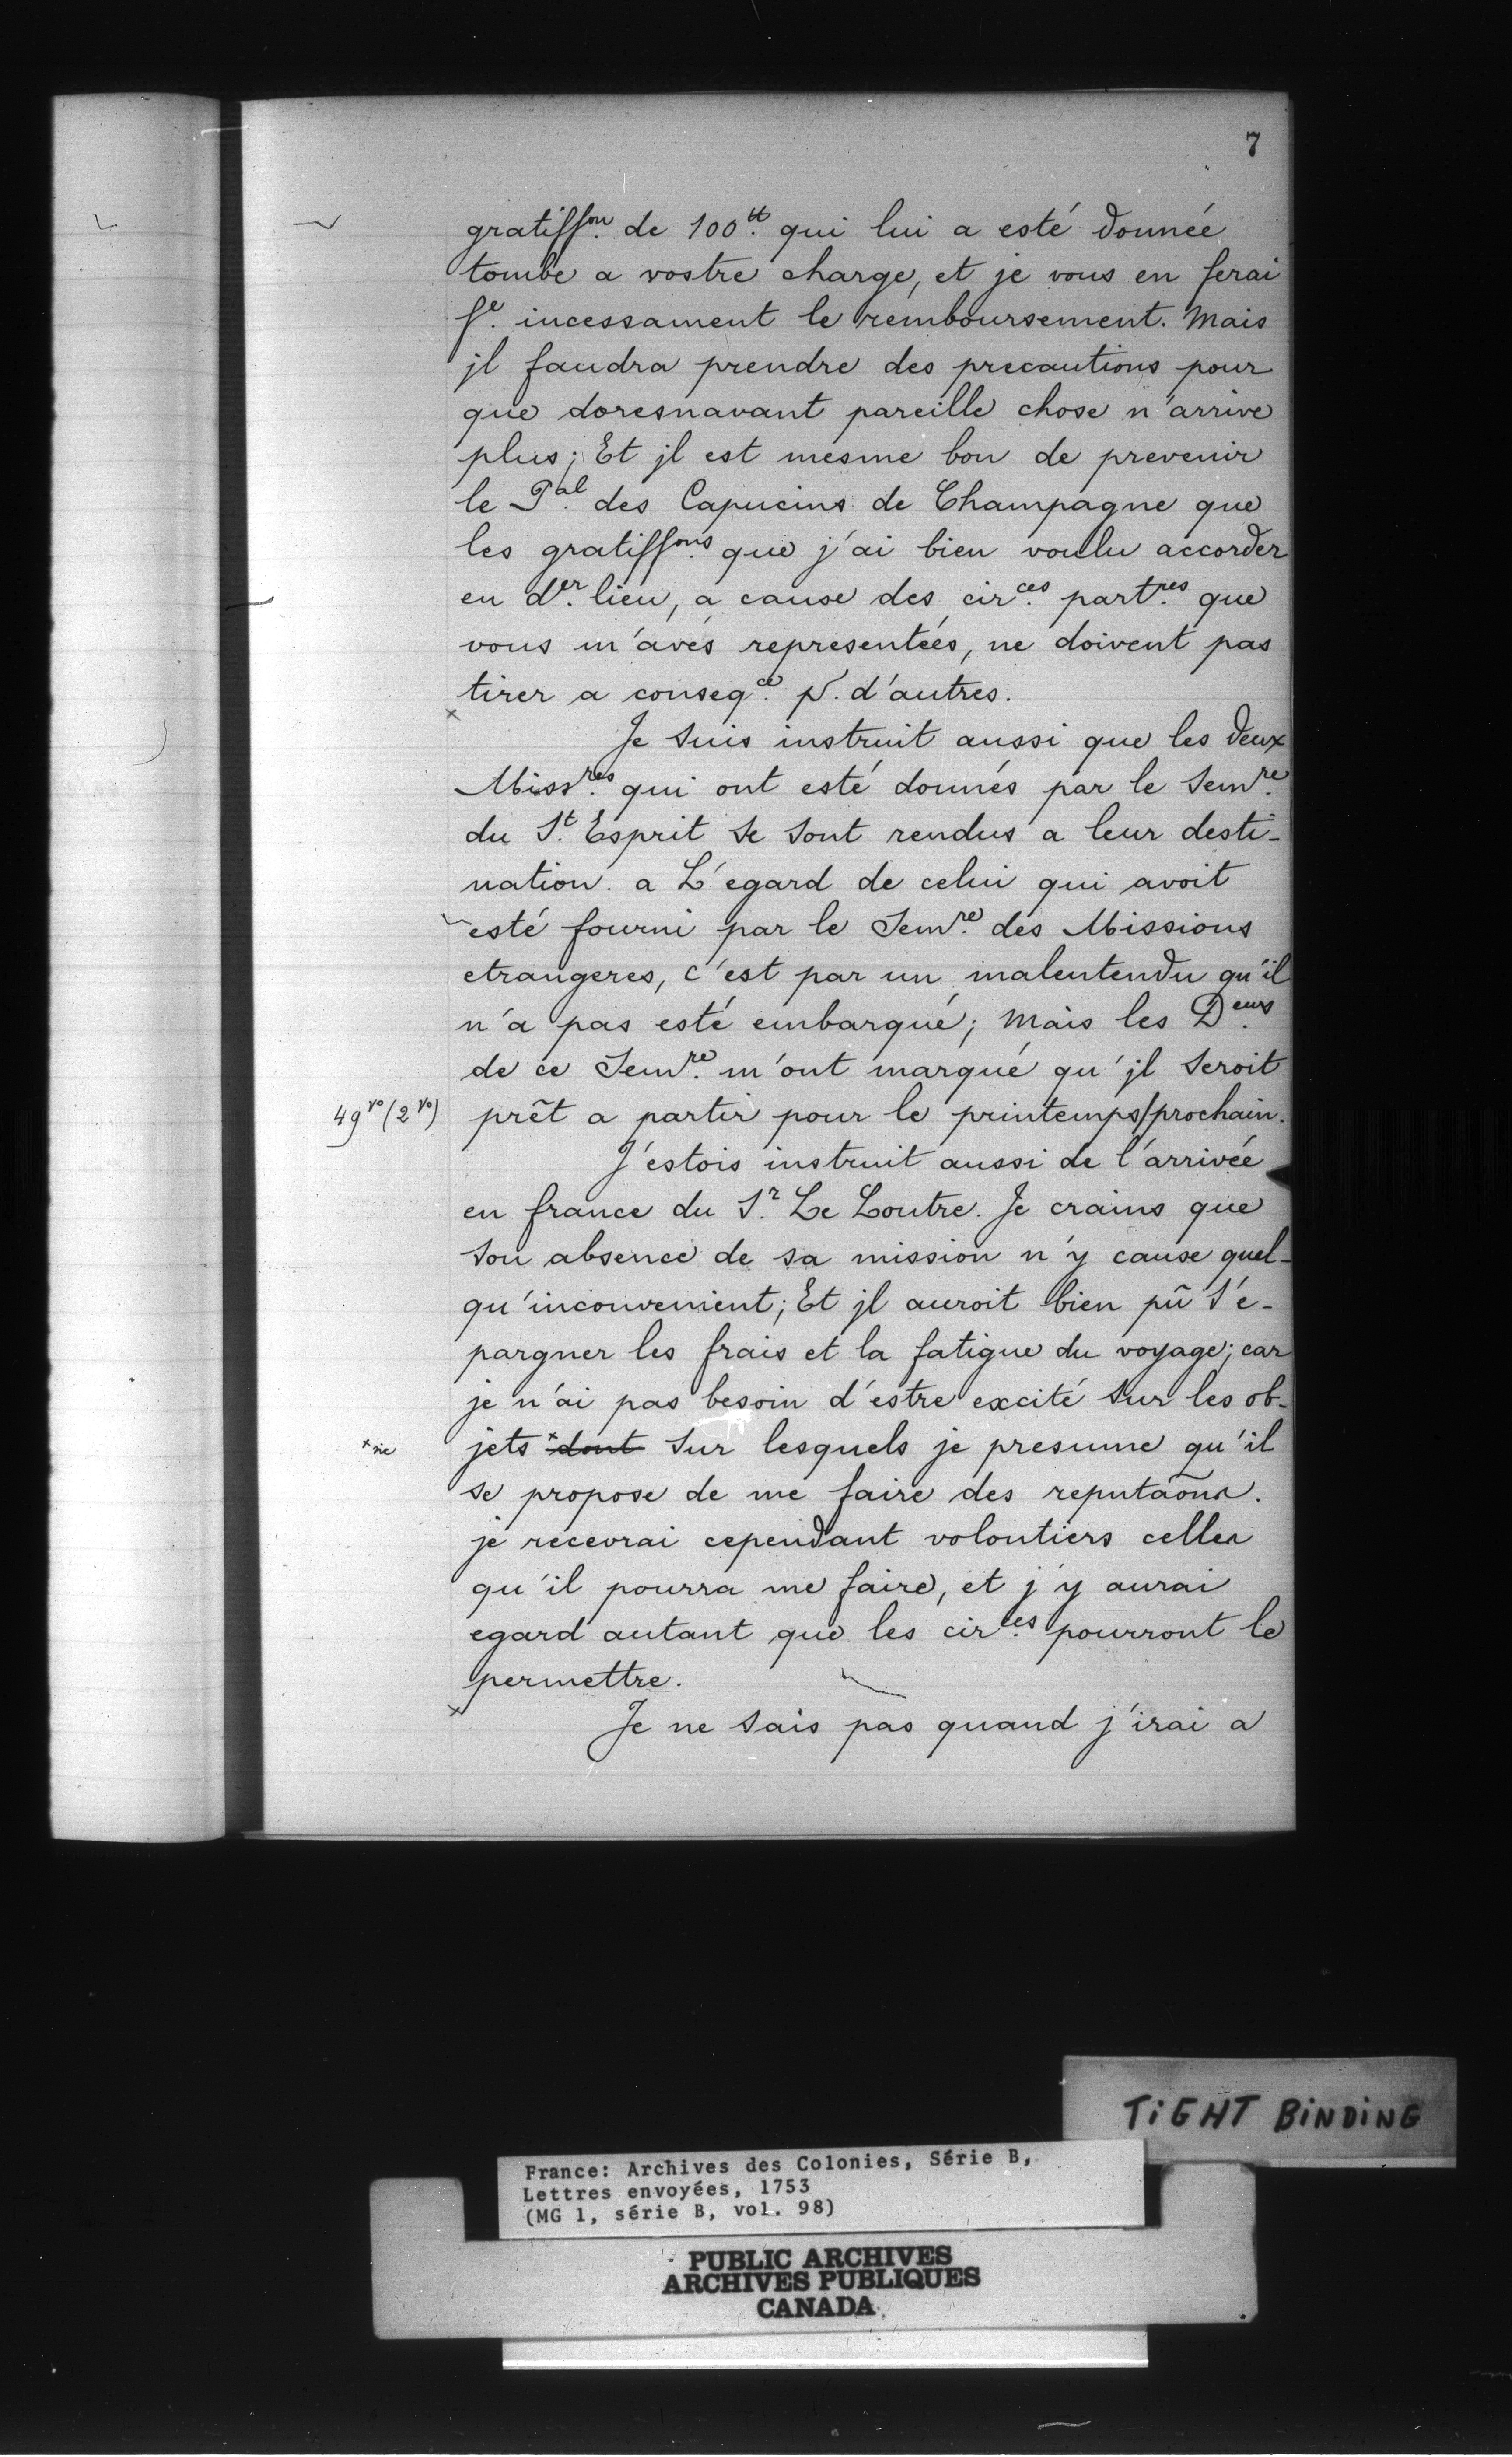 7
gratiff.on de 100.tt qui lui a esté donnée
tombe a vostre charge, et je vous en ferai
f.e incessament le remboursement. Mais
jl faudra prendre des precautions pour
que doresnavant pareille chose n'arrive
plus; Et jl est mesme bon de prevenir
le P.al des Capucins de Champagne que
les gratiff.ons que j'ai bien voulu accorder
en d.er lieu, a cause des cir.ces part.res que
vous m'avés representées, ne doivent pas
tirer a conseq.ce p.r d'autres.
Je suis instruit aussi que les deux
Miss.res qui ont esté donnés par le Sem.re
du S.t Esprit se sont rendus a leur desti-
nation. a L'egard de celui qui avoit
esté fourni par le Sem.re des Missions
etrangeres, c'est par un malentendu qu'il
n'a pas esté embarqué; Mais les D.eurs
de ce Sem.re m'ont marqué qu'jl seroit
49 vo (2 vo) prêt a partir pour le printemps/prochain.
J'estois instruit aussi de l'arrivée
en france du S.r Le Loutre. Je crains que
son absence de sa mission n'y cause quel-
qu'inconvenient; Et jl auroit bien pû s'é-
pargner les frais et la fatigue du voyage; car
je n'ai pas besoin d'estre excité sur les ob-
* sic jets * dont sur lesquels je presume qu'il
se propose de me faire des reputaõns.
je recevrai cependant volontiers celles
qu'il pourra me faire, et j'y aurai
egard autant que les cir.ces pourront le
permettre.
Je ne sais pas quand j'irai a
TIGHT BINDING
France: Archives des Colonies, Série B,
Lettres envoyées, 1753
(MG 1, série B, vol. 98)
PUBLIC ARCHIVES
ARCHIVES PUBLIQUES
CANADA